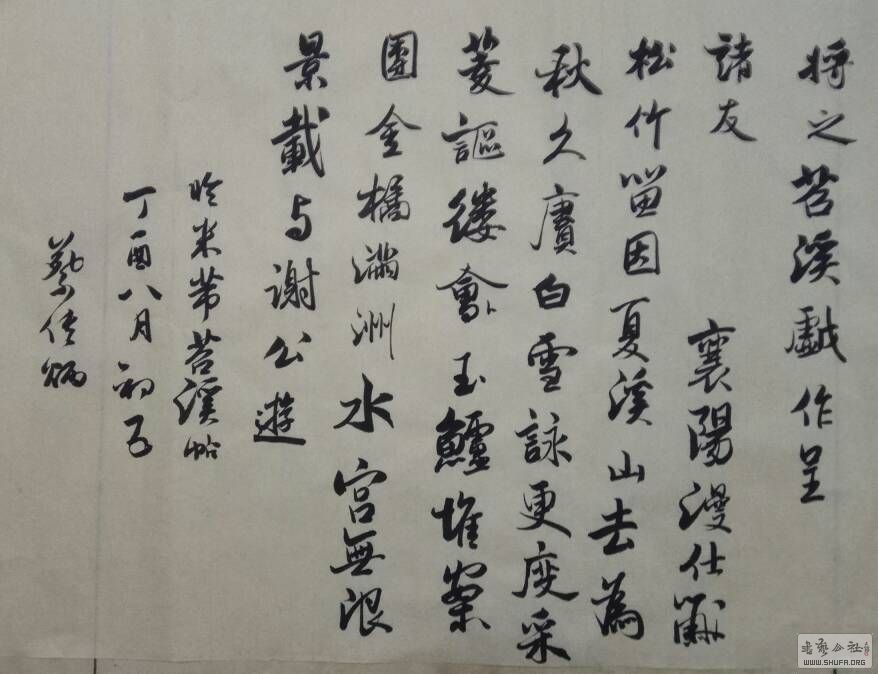 將之苕溪戲作呈
諸友 襄陽漫仕黻
松竹留因夏溪山去為
秋久賡白雪詠更度采
菱謳縷會玉鱸堆案
團金橘滿洲水宮無限
景載与謝公遊
临米芾苕溪帖
丁酉八月初五
蔡炳
書藝公社
WWW.SHUFA.ORG